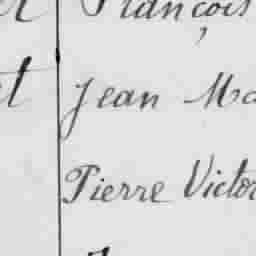 François
Jean Ma
Pierre Victor